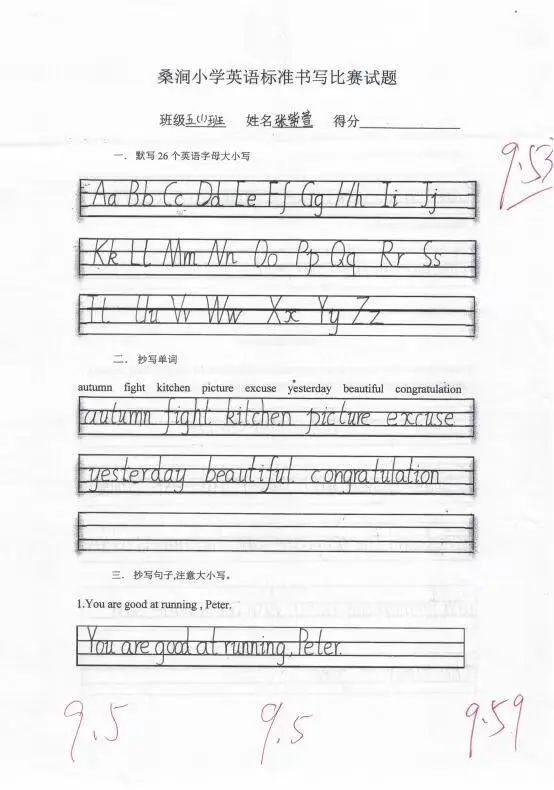 桑涧小学英语标准书写比赛试题
班级五(1)班 姓名张紫萱 得分
9.53
一. 默写26个英语字母大小写
Aa Bb Cc Dd Ee Ff Gg Hh Ii Jj
Kk Ll Mm Nn Oo Pp Qq Rr Ss
Tt Uu Vv Ww Xx Yy Zz
二. 抄写单词
autumn fight kitchen picture excuse yesterday beautiful congratulation
autumn fight kitchen picture excuse
yesterday beautiful congratulation
三. 抄写句子,注意大小写。
1.You are good at running , Peter.
You are good at running, Peter.
9.5 9.5 9.59